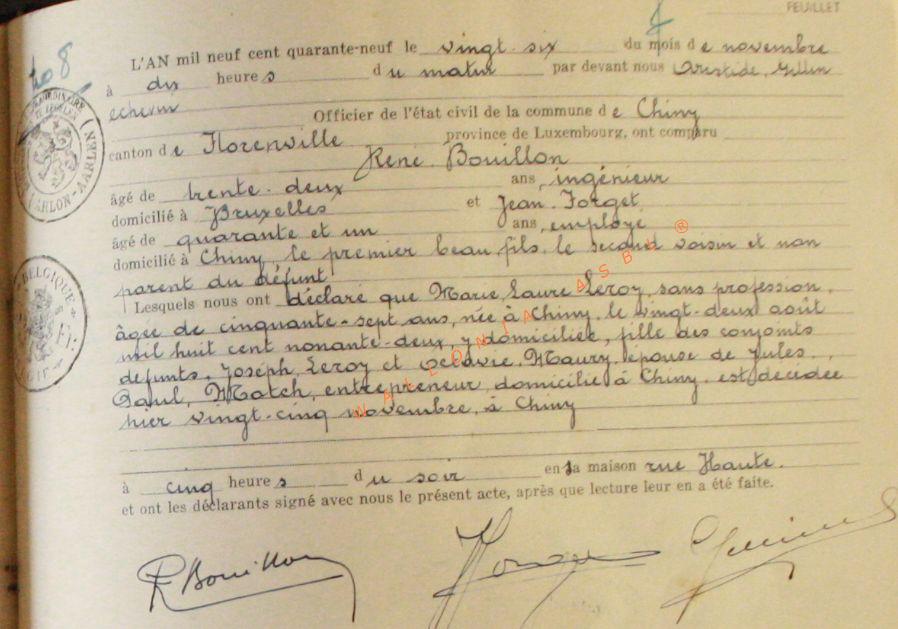 FEUILLET
L'AN mil neuf cent quarante-neuf le vingt-six du mois de novembre
à dix heures du matin par devant nous Aristide, Gillen
echevin
Officier de l'état civil de la commune de Chiny
canton de Florenville province de Luxembourg, ont comparu
René Bouillon
âgé de trente-deux ans, ingénieur
domicilié à Bruxelles et Jean Forget,
âgé de quarante et un ans, employé
domicilié à Chiny, le premier beau-fils, le second voisin et non
parent du défunt
Lesquels nous ont déclaré que Marie, Laure Leroy, sans profession,
âgée de cinquante-sept ans, née à Chiny, le vingt-deux août
mil huit cent nonante-deux, y domiciliée, fille des conjoints
defunts, Joseph, Leroy et Octavie, Maury, épouse de Jules,
Paul, Match, entrepreneur domicilié à Chiny, est décédée
hier vingt-cinq novembre, à Chiny
à cinq heures du soir en sa maison rue Haute.
et ont les déclarants signé avec nous le présent acte, après que lecture leur en a été faite.
R Bouillon
WALLONIA ASBL ®
ARLON-AARLEN
BELGIQUE